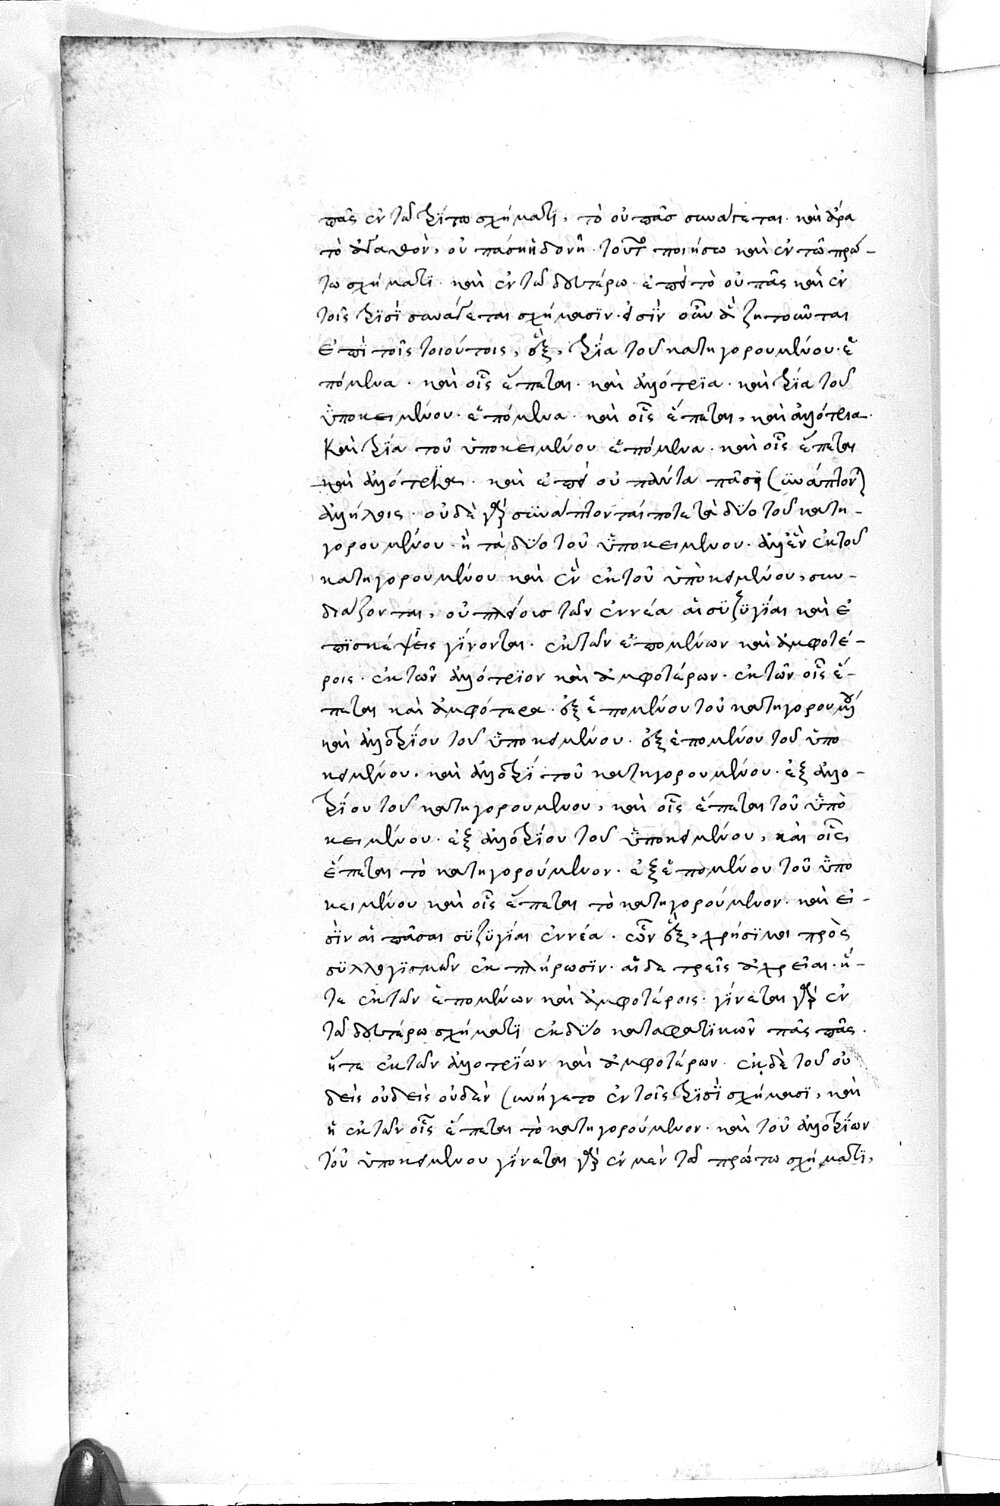 πᾶς ἐν τῶ τρίτω σχήματι, τὸ οὐ πᾶσ συνάγεται· καὶ ἄρα
τὸ ἀγαθὸν, οὐ πάσηἡδονῆ· τοῦτο ποιήσω καὶ ἐν τῶ πρώ-
τω σχήματι· καὶ ἐν τῶ δευτέρω· ἐπεὶ τὸ οὐ πᾶς καὶ ἐν
τοῖς τρισὶ συνάγεται σχήμασιν· εἰσὶν οὖν ἃ ζητοῦνται
ἐπὶ τοῖς τοιούτοις, ἓξ, τρία τοῦ κατηγορουμένου· ἑ
πόμενα· καὶ οἷς ἕπεται· καὶ ἀλλότρια· καὶ τρία τοῦ
ὑποκειμένου· ἑπόμενα· καὶ οἷς ἕπεται, καὶ ἀλλότρια·
καὶ τρία τοῦ ὑποκειμένου ἑπόμενα· καὶ οἷς ἕπεται
καὶ ἀλλότρια· καὶ ἐπεὶ οὐ πάντα πᾶσι συνάπτον
ἀλλήλοις· οὐδὲ γὰρ συνάπτονταί ποτε τὰ δύο τοῦ κατη-
γορουμένου· ἢ τὰ δύο τοῦ ὑποκειμένου· ἀλλ' ἓν ἐκ τοῦ
κατηγορουμένου καὶ ἓν ἐκ τοῦ ὑποκειμένου, συν-
διάζονται, οὐ πλείους τῶν ἐννέα αἱ συζυγίαι καὶ ἐ
πισκέψεις γίνονται· ἐκ τῶν ἑπομένων καὶ ἀμφοτέ-
ροις· ἐκ τῶν ἀλλότριον καὶ ἀμφοτέρων· ἐκ τῶν οἷς ἕ-
πεται καὶ ἀμφότερα· ἐξ ἑπομένου τοῦ κατηγορουμένου
καὶ ἀλλοτρίου τοῦ ὑποκειμένου· ἐξ ἑπομένου τοῦ ὑπο
κειμένου· καὶ ἀλλοτρί τοῦ κατηγορουμένου· ἐξ ἀλλο-
τρίου τοῦ κατηγορουμένου, καὶ οἷς ἕπεται τοῦ ὑπὸ
κειμένου· ἐξ ἀλλοτρίου τοῦ ὑποκειμένου, καὶ οἷς
ἕπεται τὸ κατηγορούμενον· ἐξ ἑπομένου τοῦ ὑπο
κειμένου καὶ οἷς ἕπεται τὸ κατηγορούμενον· καὶ εἰ
σὶν αἱ πᾶσαι συζυγίαι ἐννέα· ὧν ἓξ, χρήσιμοι πρὸς
συλλογισμῶν ἐκπλήρωσιν· αἱ δὲ τρεῖς ἀχρεῖαι· ἥ-
τε ἐκ τῶν ἑπομένων καὶ ἀμφοτέροις· γίνεται γὰρ ἐν
τῶ δευτέρω σχήματι ἐκ δύο καταφατικῶν πᾶς πᾶς·
ἥτε ἐκ τῶν ἀλλοτρίων καὶ ἀμφοτέρων· ἐκ δὲ τοῦ οὐ
δεὶς οὐδεὶς οὐδὲν συνήγετο ἐν τοῖς τρισὶ σχήμασι, καὶ
ἡ ἐκ τῶν οἷς ἕπεται τὸ κατηγορούμενον· καὶ τοῦ ἀλλοτρίων
τοῦ ὑποκειμένου γίνεται γὰρ ἐν μὲν τῶ πρώτω σχήματι,